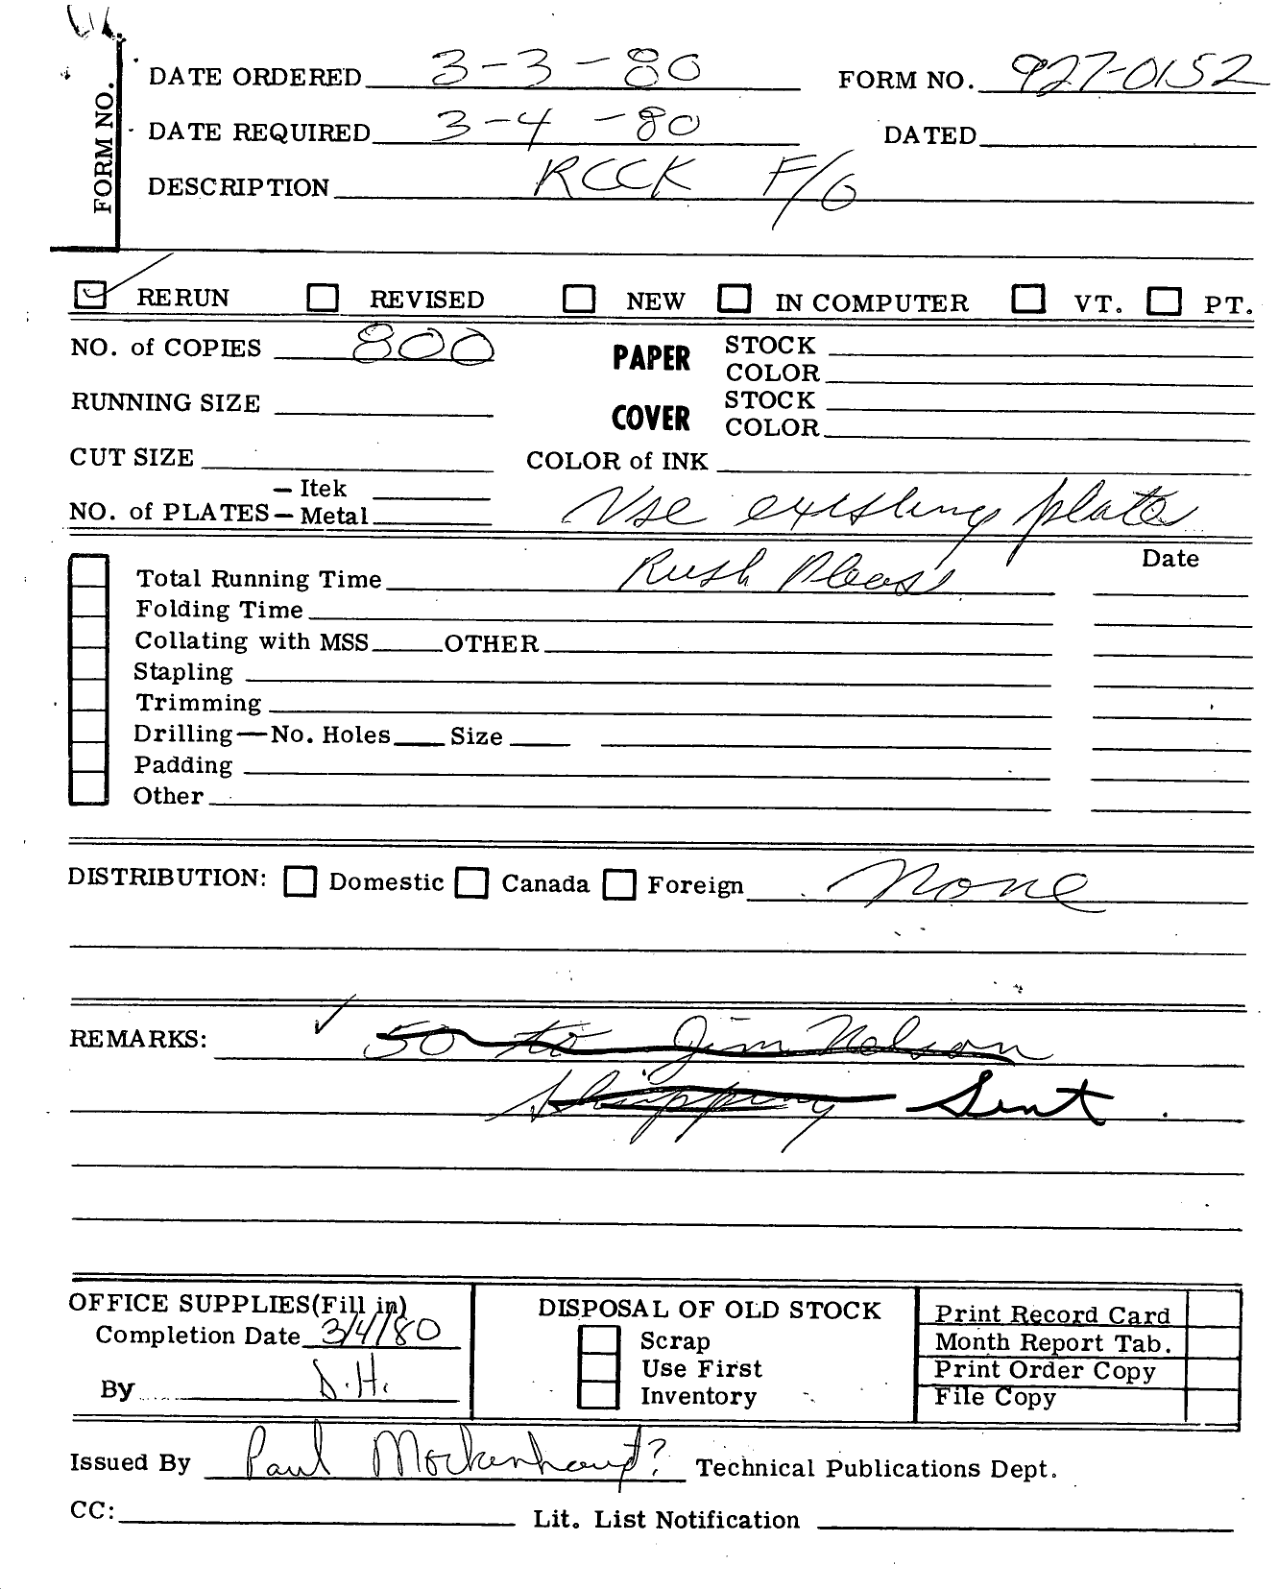 DATE ORDERED 3-3-80 FORM NO. 927-0152
DATE REQUIRED 3-4-80 DATED
DESCRIPTION RCCK F/G
FORM NO.
RERUN REVISED NEW IN COMPUTER VT. PT.
NO. of COPIES 800 PAPER STOCK
COLOR
RUNNING SIZE COVER STOCK
COLOR
CUT SIZE COLOR of INK
— Itek
NO. of PLATES — Metal Use existing plate
Date
Total Running Time Rush Please
Folding Time
Collating with MSS OTHER
Stapling
Trimming
Drilling—No. Holes Size
Padding
Other
DISTRIBUTION: Domestic Canada Foreign None
REMARKS: 50 to Jim Nelson
Shipping Sent
OFFICE SUPPLIES(Fill in) DISPOSAL OF OLD STOCK Print Record Card
Completion Date 3/4/80 Scrap Month Report Tab.
Use First Print Order Copy
By D.H. Inventory File Copy
Issued By Paul Mockenhaupt? Technical Publications Dept.
CC: Lit. List Notification